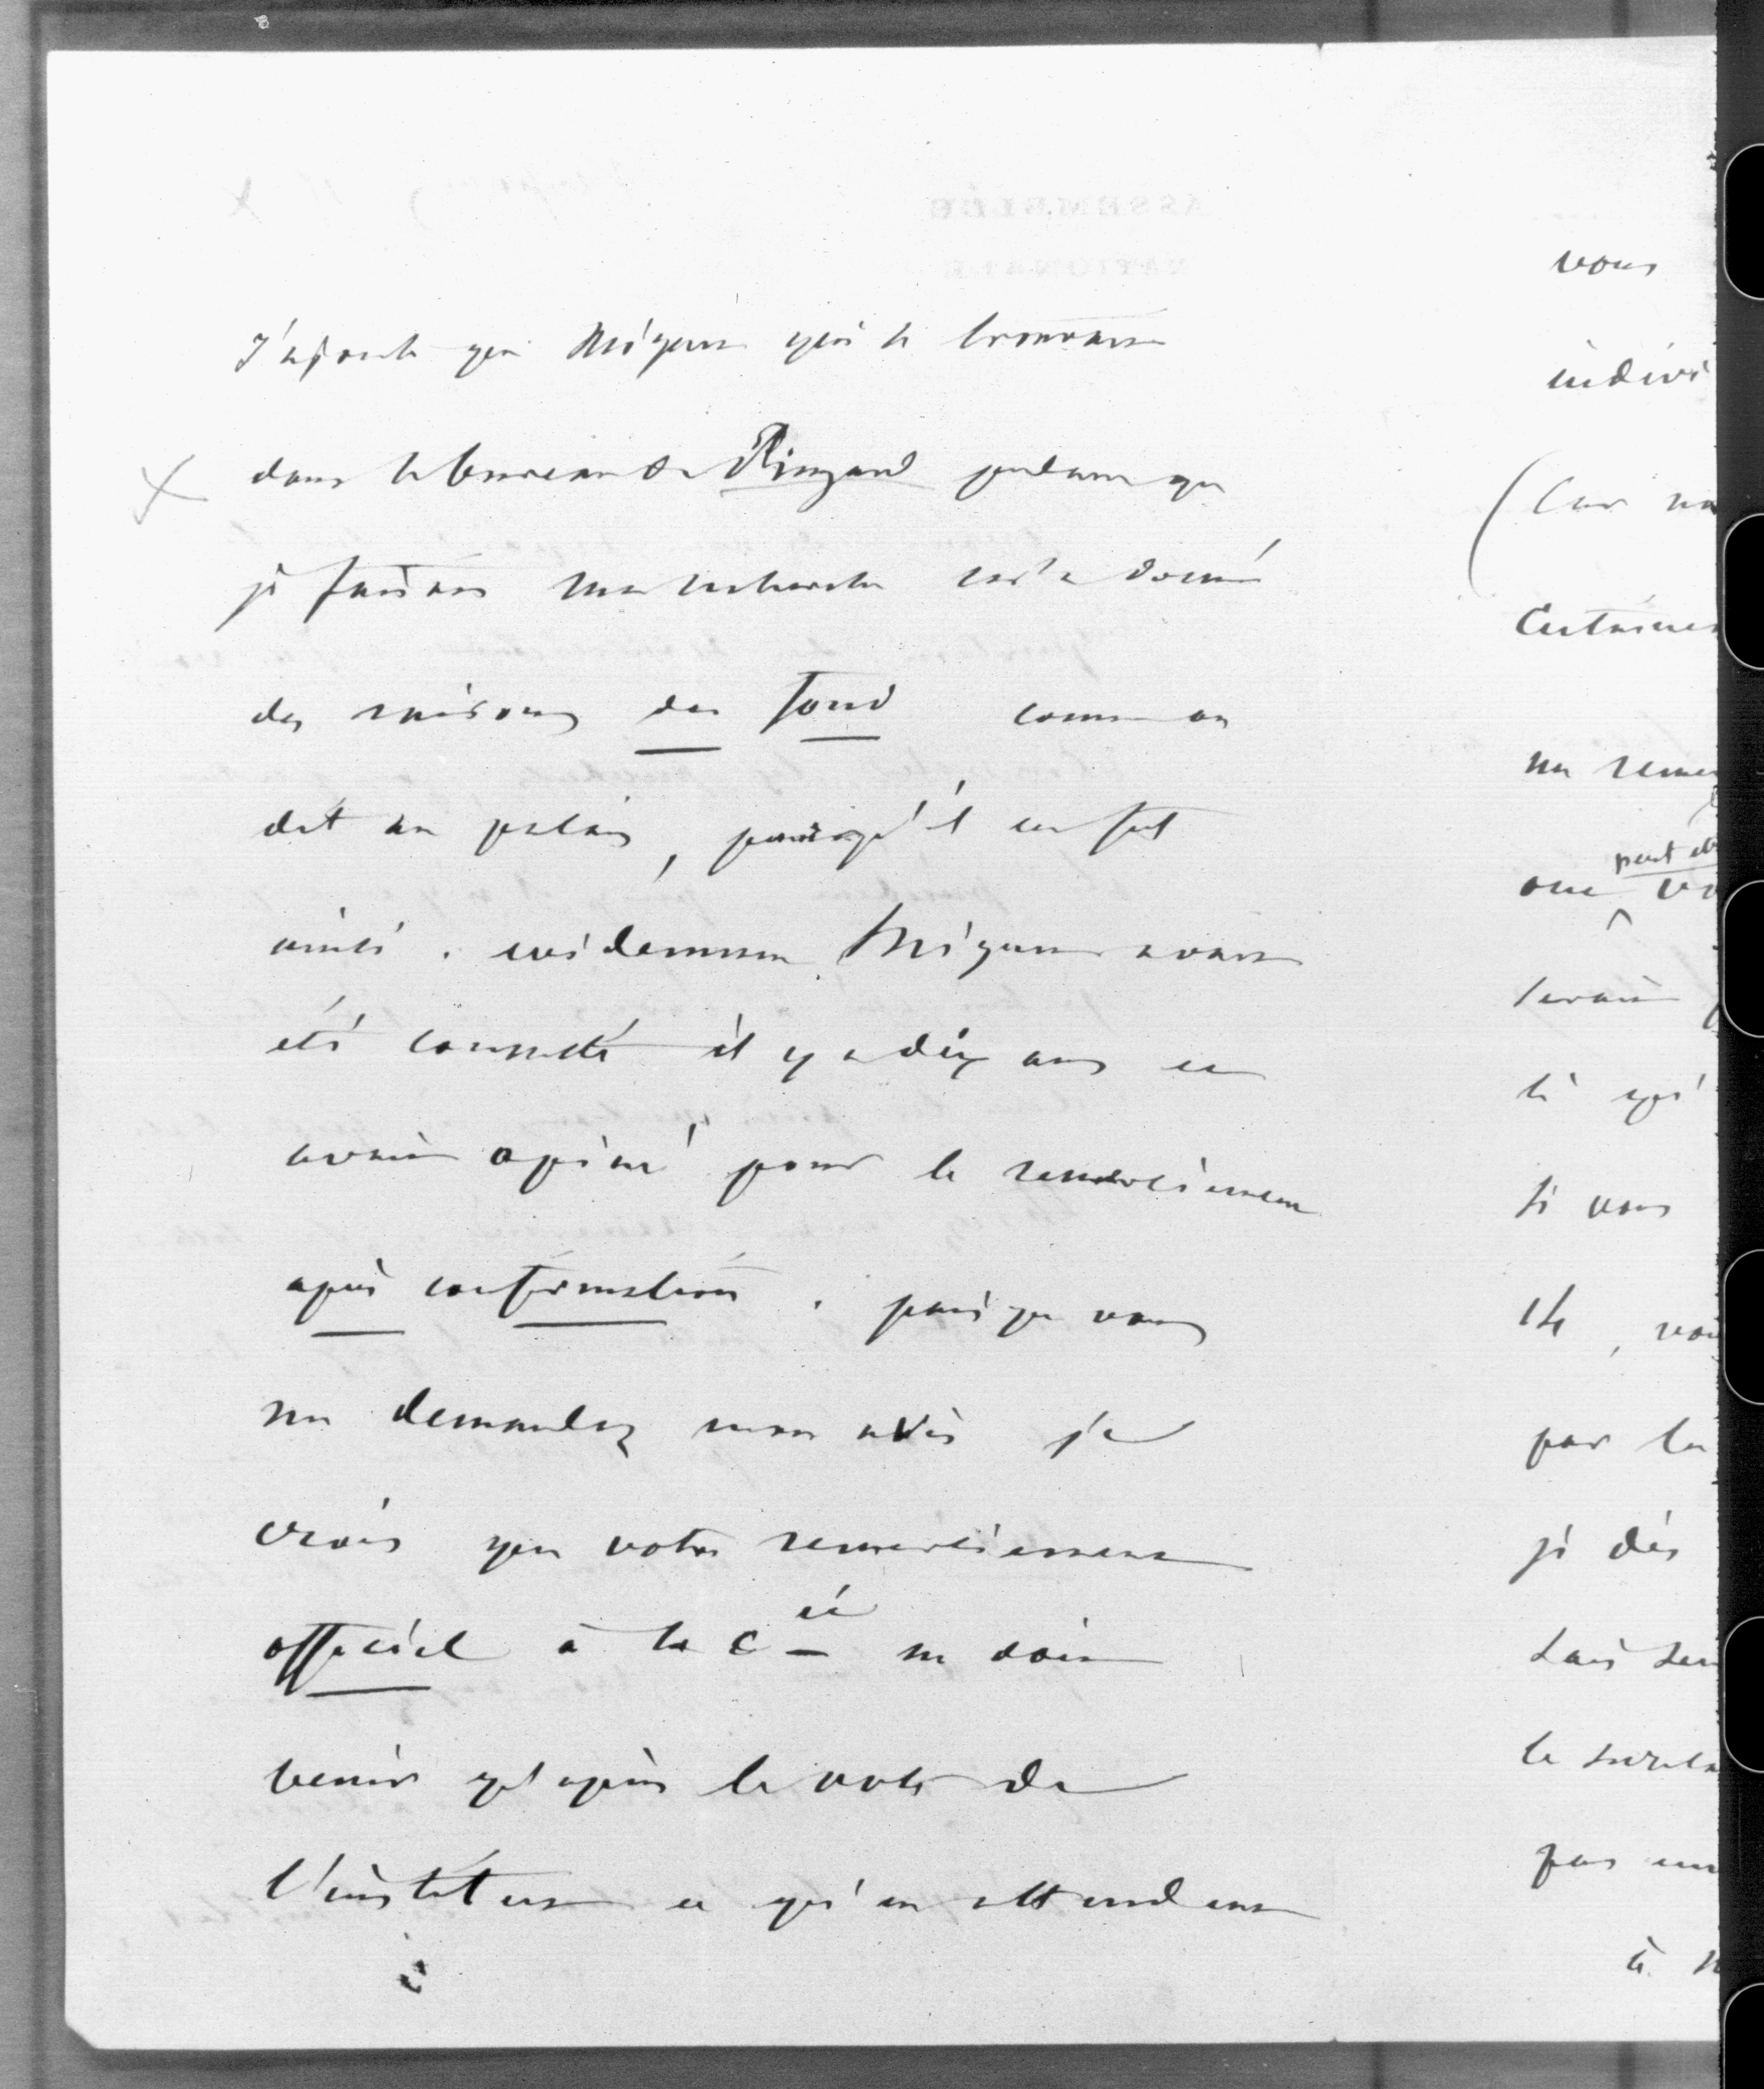 J'ajoute que Mignet qui se trouvait
dans le bureau de Pingard pendant que
je faisais ma recherche m'a donné
des raisons de fond comme on
dit au palais, pourquoi il en fut
ainsi. évidemment Mignet avait
été consulté il y a dix ans et
avait opiné pour le remerciement
après confirmation. puisque vous
me demandez mon avis je
crois que votre remerciement
officiel à la Cie ne doit
venir qu'après le vote de
l'institut et qu'en attendant
vous
indivi
(Car
Certaine
me
peut
que
serait
là qu'
si vous
14,
par la
je dis
à